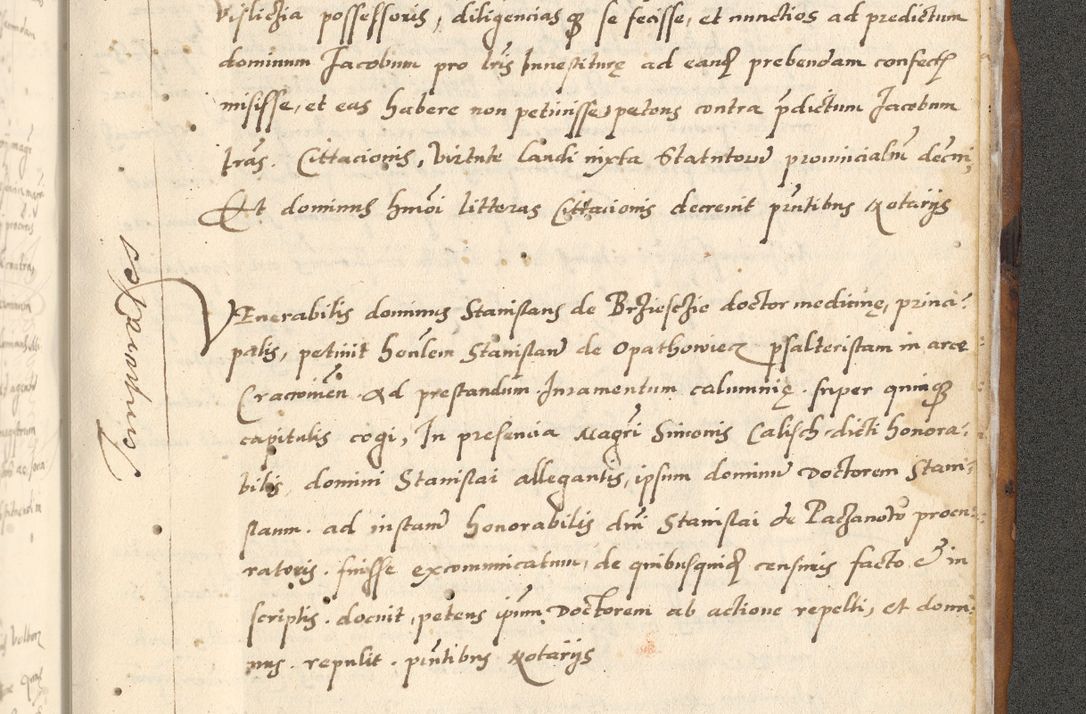 Visliczia possessoris, diligencias qz se fecisse, et nunctios ad predictum
dominum Jacobum pro lris Investiturę ad eand prebendam confectis
misisse, et eas habere non petivisse, petens contra pdictum Jacobum
lras. Cittacionis, virtute laudi iuxta Statutorum provincialium decni,
Et dominus hmoi litteras Cittacionis decrevit pntibus Notarijs
Temporales
VEnerabilis dominus Stanislaus de Brzieschie doctor medicinę, princi-
palis, petivit honlem Stanislaum de Opathowiecz psalteristam in arce
Cracovien. Ad prestandum Juramentum calumnię. super quinqz
capitulis cogi, In presencia Magri Simonis Calisch dicti honora-
bilis, domini Stanislai allegantis, ipsum dominum Doctorem Stani-
slaum. ad instam honorabilis dni Stanislai de Paczanow procu-
ratoris. fuisse excommunicatum, de quibusquid censuris facto & in
scriptis. docuit, petens ipsum Doctorem ab actione repelli, et domi-
nus. repulit. pntibus Notarijs